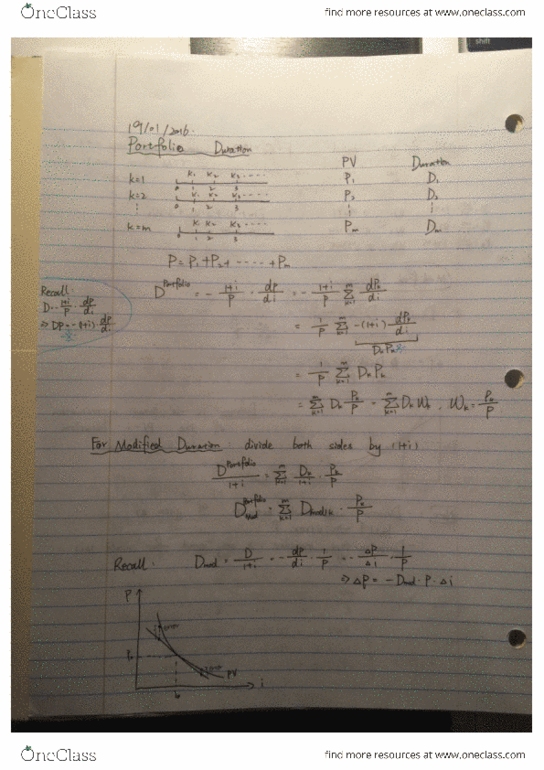 OneClass find more resources at www.oneclass.com
shift
19/01/2016.
Portfolio Duration
PV Duration
k=1 K₁ K₂ K₃ ..... P₁ D₁
0 1 2 3
k=2 K₁ K₂ K₃ ..... P₂ D₂
0 1 2 3
⋮ ⋮ ⋮
k=m K₁ K₂ K₃ ..... Pm Dm
0 1 2 3
P = P₁+P₂+ ····· +Pm
Recall:
D = - (1+i)/P · dP/di
⇒ DP = -(1+i) · dP/di
D^Portfolio = - (1+i)/P · dP/di = - (1+i)/P Σ_{k=1}^{m} dPk/di
= 1/P Σ_{k=1}^{m} -(1+i) · dPk/di
DkPk
= 1/P Σ_{k=1}^{m} Dk Pk
= Σ_{k=1}^{m} Dk Pk/P = Σ_{k=1}^{m} Dk Wk , Wk = Pk/P
For Modified Duration divide both sides by (1+i)
D^Portfolio/(1+i) = Σ_{k=1}^{m} Dk/(1+i) · Pk/P
D^Portfolio_Mod = Σ_{k=1}^{m} Dmod,k · Pk/P
Recall: Dmod = D/(1+i) = - dP/di · 1/P = - ΔP/Δi · 1/P
⇒ ΔP = - Dmod · P · Δi
P
P₀
PV
i₀
i
OneClass find more resources at www.oneclass.com